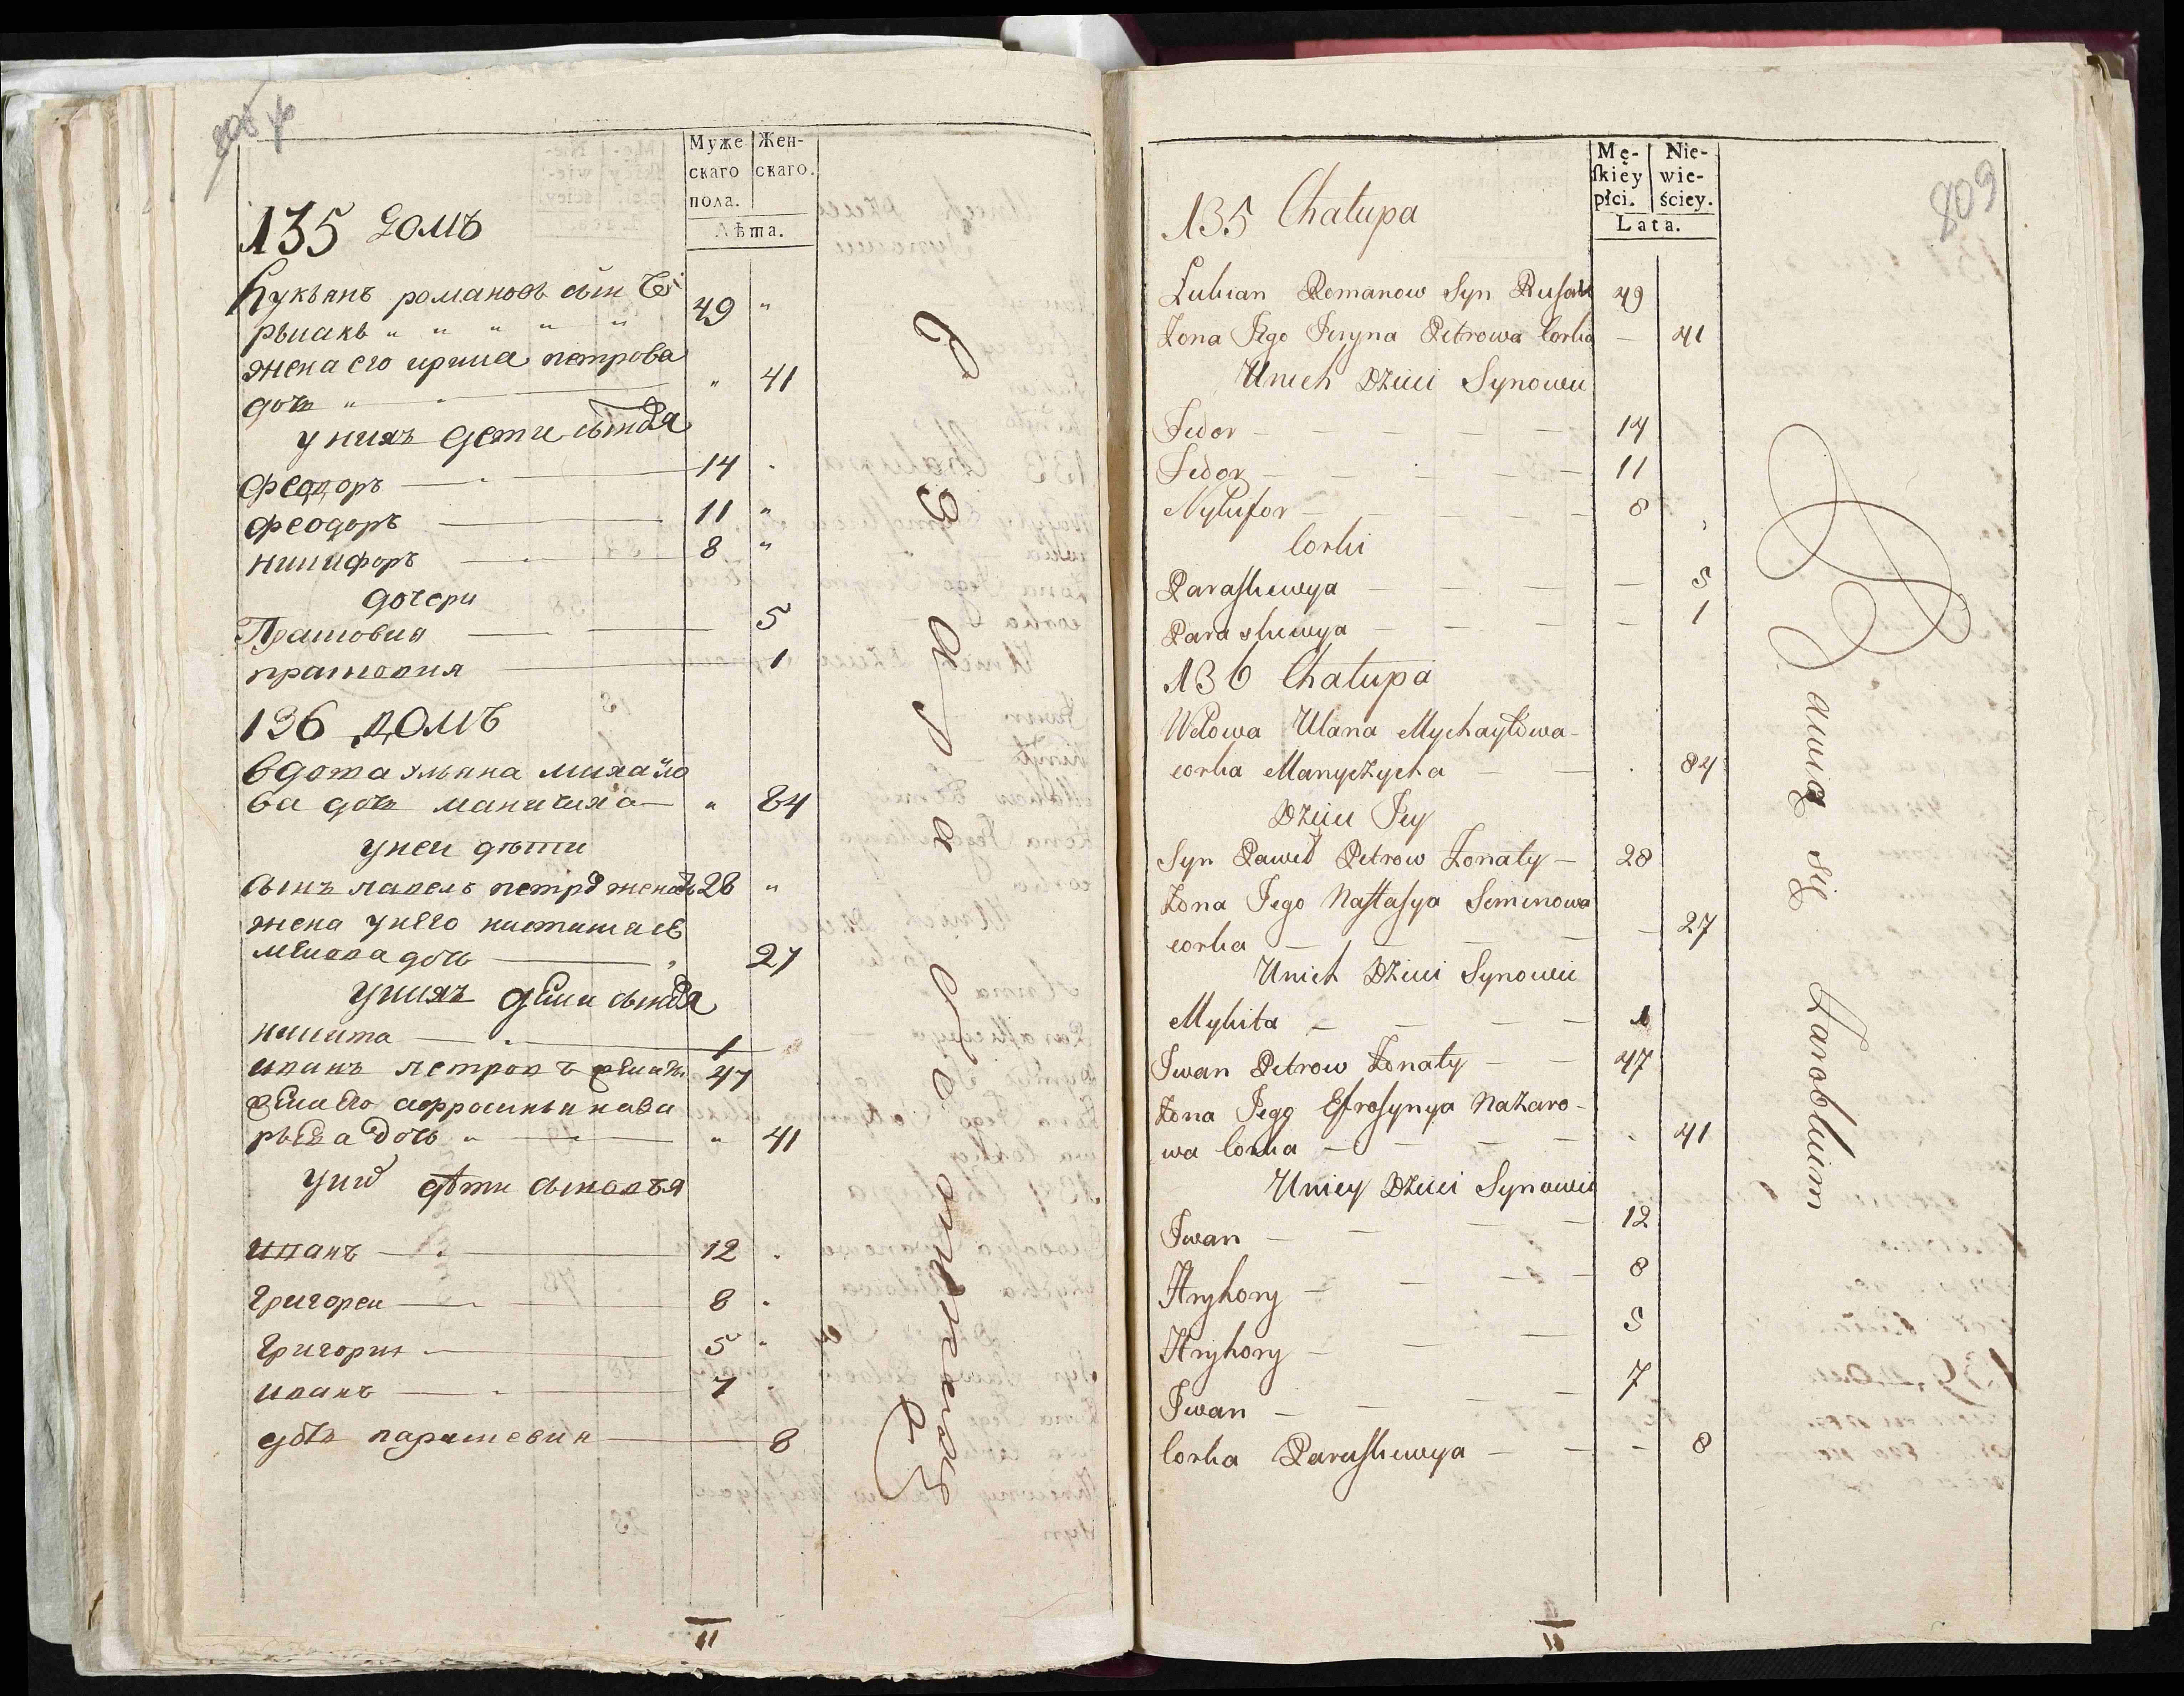 Муже скаго пола.
Жен- скаго.
Лѣта.
135 домъ
Лукьянъ романовъ сын
49
жена его ирина петрова
дочь 41
у нихъ дети сыновя
Феодоръ 14
Феодоръ 11
никифоръ 8
дочери
Прасковия 5
прасковия 1
136 домъ
вдова ульяна михайло
ва дочь маничиха 84
у неи дѣти
сынъ павелъ петров женатъ 28
жена у него настасия се
менова дочь 27
у нихъ дети сыновя
никита 1
иванъ петровъ женатъ 47
жена его афросинья наза
рьева дочь 41
у них дѣти сыновъя
иванъ 12
григореи 8
григории 5
иванъ 7
дочь парашевия 8
809
Mę- skiey płci.
Nie- wie- ściey.
Lata.
135 Chałupa
Lukian Romanow Syn Rusak 49
Żona Jego Jeryna Petrowa Corka — 41
Unich Dzieci Synowie
Fedor — 14
Fedor — 11
Nykifor — 8
Corki
Paraskewya — 5
Paraskewya — 1
136 Chałupa
Wdowa Ulana Mychayłowa-
corka Manyczycha — 84
Dzieci Jey
Syn Paweł Petrow Żonaty — 28
Żona Jego Nastasya Semenowa
corka — 27
Unich Dzieci Synowie
Mykita — 1
Iwan Petrow Żonaty — 47
Żona Jego Efrosynya Nazaro-
wa Corka — 41
Uniey Dzieci Synowie
Iwan — 12
Hryhory — 8
Hryhory — 5
Iwan — 7
Corka Paraskewya — 8
II
II